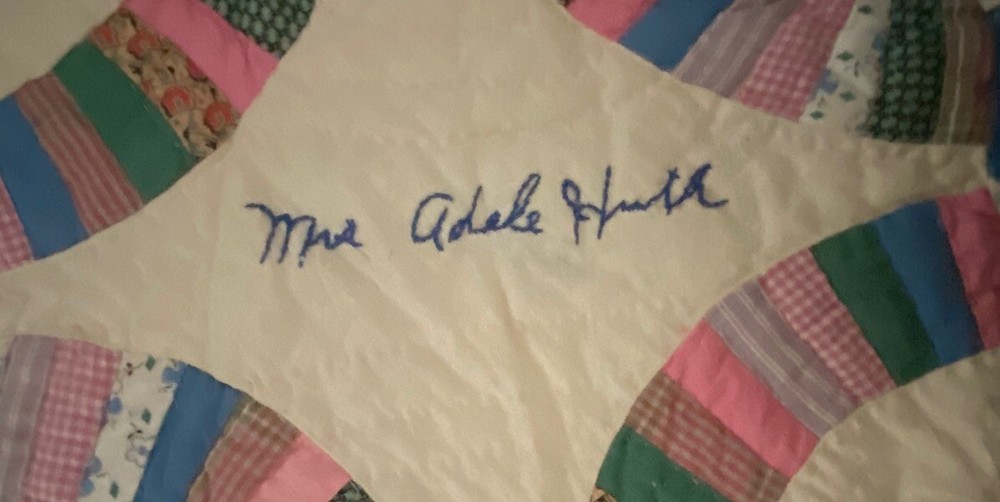 Mrs Adale Huth